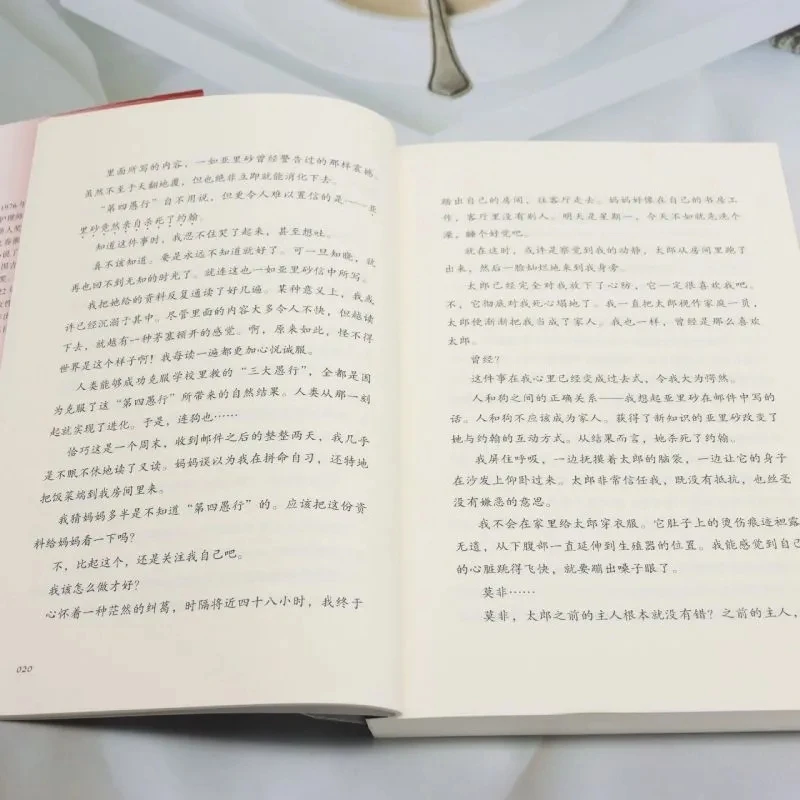 1976年
里面所写的内容，一如亚里砂曾经警告过的那样震撼。
虽然不至于天翻地覆，但也绝非立即就能消化下去。
“第四愚行”自不用说，但更令人难以置信的是——亚
里砂竟然亲自杀死了约翰。
知道这件事时，我忍不住哭了起来，甚至想吐。
真不该知道。要是永远不知道就好了。可一旦知晓，就
再也回不到无知的时光了。就连这也一如亚里砂信中所写。
我把她给的资料反复通读了好几遍。某种意义上，我或
许已经沉溺于其中。尽管里面的内容大多令人不快，但越读
下去，就越有一种茅塞顿开的感觉。啊，原来如此，怪不得
世界是这个样子啊！我每读一遍都更加心悦诚服。
人类能够成功克服学校里教的“三大愚行”，全都是因
为克服了这“第四愚行”所带来的自然结果。人类从那一刻
起就实现了进化。于是，连狗也……
恰巧这是一个周末，收到邮件之后的整整两天，我几乎
是不眠不休地读了又读。妈妈误以为我在拼命自习，还特地
把饭菜端到我房间里来。
我猜妈妈多半是不知道“第四愚行”的。应该把这份资
料给妈妈看一下吗？
不，比起这个，还是关注我自己吧。
我该怎么做才好？
心怀着一种茫然的纠葛，时隔将近四十八小时，我终于
020
踏出自己的房间，往客厅走去。妈妈好像在自己的书房工
作，客厅里没有别人。明天是星期一，今天不如就先洗个
澡，睡个好觉吧。
就在这时，或许是察觉到我的动静，太郎从房间里跑了
出来，然后一脸灿烂地来到我身旁。
太郎已经完全对我放下了心防，它一定很喜欢我吧。
不，它彻底对我死心塌地了。我一直把太郎视作家庭一员，
太郎便渐渐把我当成了家人。我也一样，曾经是那么喜欢
太郎。
曾经？
这件事在我心里已经变成过去式，令我大为愕然。
人和狗之间的正确关系——我想起亚里砂在邮件中写的
话。人和狗不应该成为家人。获得了新知识的亚里砂改变了
她与约翰的互动方式。从结果而言，她杀死了约翰。
我屏住呼吸，一边抚摸着太郎的脑袋，一边让它的身子
在沙发上仰卧过来。太郎非常信任我，既没有抵抗，也丝毫
没有嫌恶的意思。
我不会在家里给太郎穿衣服。它肚子上的烫伤痕迹袒露
无遗，从下腹部一直延伸到生殖器的位置。我能感觉到自己
的心脏跳得飞快，就要蹦出嗓子眼了。
莫非……
莫非，太郎之前的主人根本就没有错？之前的主人，